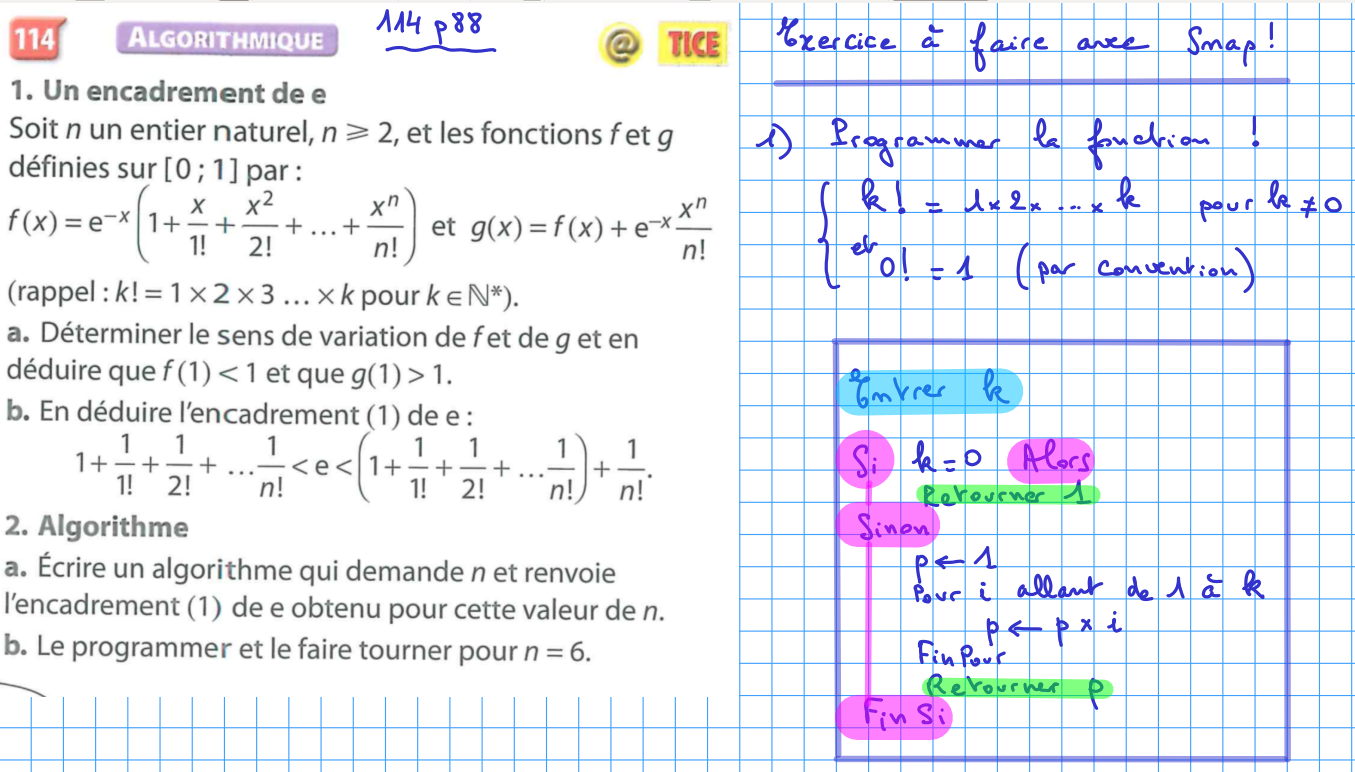 114 ALGORITHMIQUE 114 p 88 @ TICE
1. Un encadrement de e
Soit n un entier naturel, n ⩾ 2, et les fonctions f et g
définies sur [0 ; 1] par :
f(x) = e^{-x}(1 + x/1! + x²/2! + ... + xⁿ/n!) et g(x) = f(x) + e^{-x} xⁿ/n!
(rappel : k! = 1 × 2 × 3 ... × k pour k ∈ ℕ*).
a. Déterminer le sens de variation de f et de g et en
déduire que f(1) < 1 et que g(1) > 1.
b. En déduire l'encadrement (1) de e :
1 + 1/1! + 1/2! + ... 1/n! < e < (1 + 1/1! + 1/2! + ... 1/n!) + 1/n!.
2. Algorithme
a. Écrire un algorithme qui demande n et renvoie
l'encadrement (1) de e obtenu pour cette valeur de n.
b. Le programmer et le faire tourner pour n = 6.
Exercice à faire avec Snap!
1) Programmer la fonction !
k! = 1 × 2 × ... × k pour k ≠ 0
et
0! = 1 (par convention)
Entrer k
Si k = 0 Alors
Retourner 1
Sinon
p ← 1
Pour i allant de 1 à k
p ← p × i
FinPour
Retourner p
Fin Si